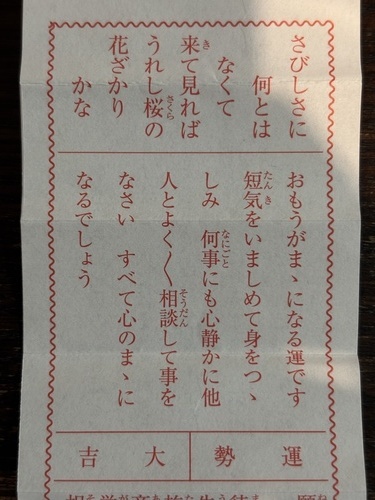 さびしさに
何とは
なくて
来て見れば
うれし桜の
花ざかり
かな
おもうがまゝになる運です
短気をいましめて身をつゝ
しみ 何事にも心静かに他
人とよく〳〵相談して事を
なさい すべて心のまゝに
なるでしょう
運勢 大吉